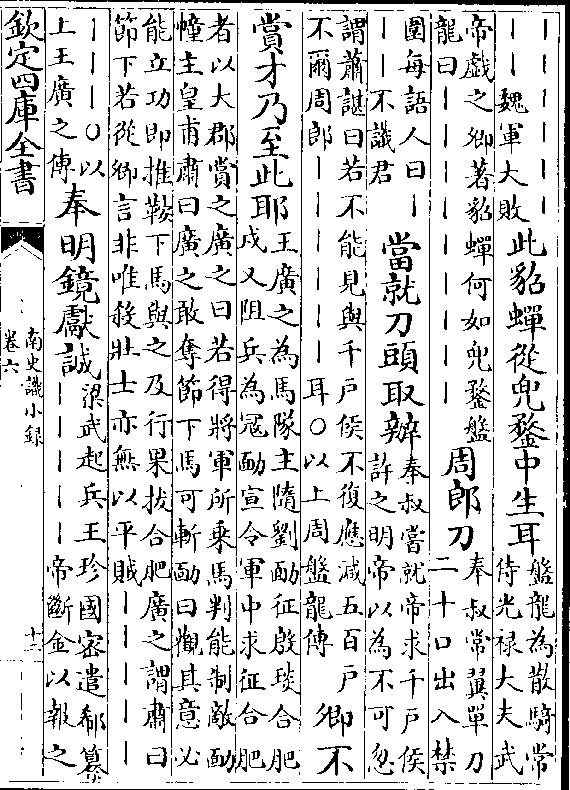 ｜｜｜｜｜｜
｜｜魏軍大敗
此貂蟬從兜鍪中生耳
盤龍為散騎常
侍光禄大夫武
帝戲之卿著貂蟬何如兜鍪盤
龍曰｜｜｜｜｜｜｜｜｜
周郎刀
奉叔常翼單刀
二十口出入禁
圍每語人曰｜
｜｜不識君
當就刀頭取辦
奉叔當就帝求千戶侯
許之明帝以為不可忽
謂蕭諶曰若不能見與千戶侯不復應减五百戶
不爾周郎｜｜｜｜｜｜耳○以上周盤龍傳
卿不
賞才乃至此耶
王廣之為馬隊主隋劉勔征殷琰合肥
戍又阻兵為冦勔宣令軍中求征合肥
者以大郡賞之廣之曰若得將軍所乗馬判能制敵勔
幢主皇甫肅曰廣之敢奪節下馬可斬勔曰觀其意必
能立功即推鞍下馬與之及行果拔合肥廣之謂肅曰
節下若從卿言非唯殺壯士亦無以平賊｜｜｜｜
｜｜｜｜○以
上王廣之傳
奉明鏡獻誠
梁武起兵王珍國宻遣郗纂
｜｜｜｜｜帝斷金以報之
欽定四庫全書
南史識小録
卷六
十三